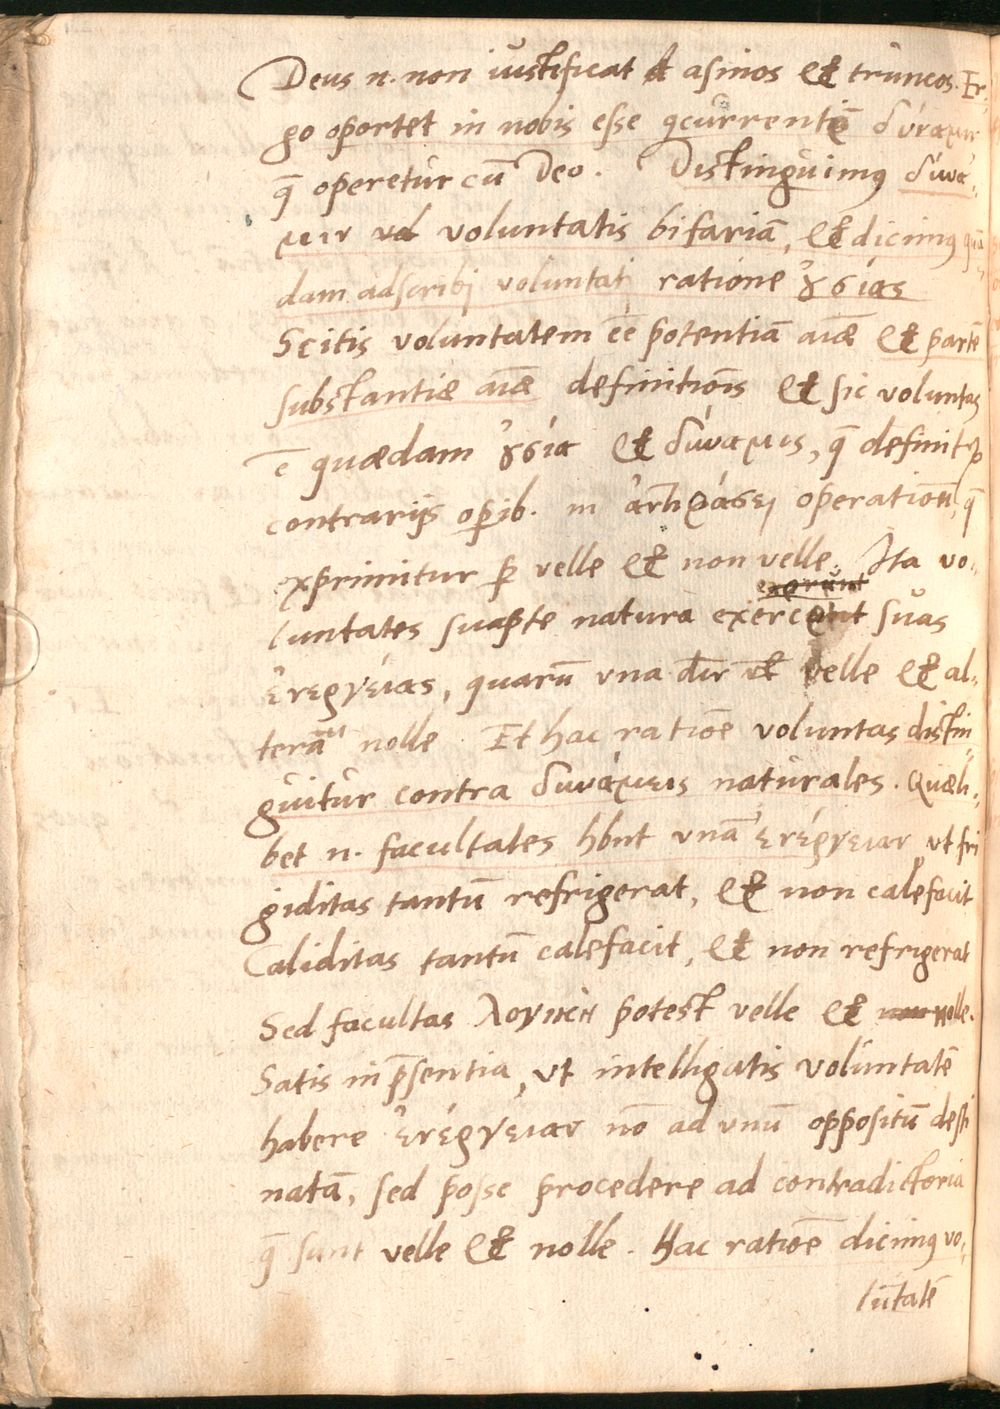 Deus n. non iustificat asinos et truncos. Er-
go oportet in nobis esse qcurrentē δύναμιν
q̄ operetur cū Deo. Distinguimus δύνα-
μιν voluntatis bifariā, et dicimus quā
dam adscribj voluntatj ratione ὀυσίας
Scitis voluntatem ēē potentiā aiæ et partē
substantiæ aiæ definitiōis et sic voluntas
ē quædam ὀυσία et δύναμις, q̄ definit~
contrarijs opib. in operationū, q̄
exprimitur p velle et non velle. Ita vo-
luntates suapte natura exercent suas
ἐνεργείας, quarū vna dr̄ vt velle et al-
terā nolle. Et hac ratiōe voluntas distin
guitur contra δυνάμεις naturales. Quæli-
bet n. facultates hbn̄t vnā ἐνέργειαν, vt fri
giditas tantū refrigerat, et non calefacit
Caliditas tantū calefacit, et non refrigerat
Sed facultas λογικὴ potest velle et nolle.
Satis in p̄sentia, vt intelligatis voluntatē
habere ἐνέργειαν nō ad vnū oppositū desti
natā, sed posse procedere ad contradictoria
q̄ sunt velle et nolle. Hac ratiōe dicimus vo-
lūtatē